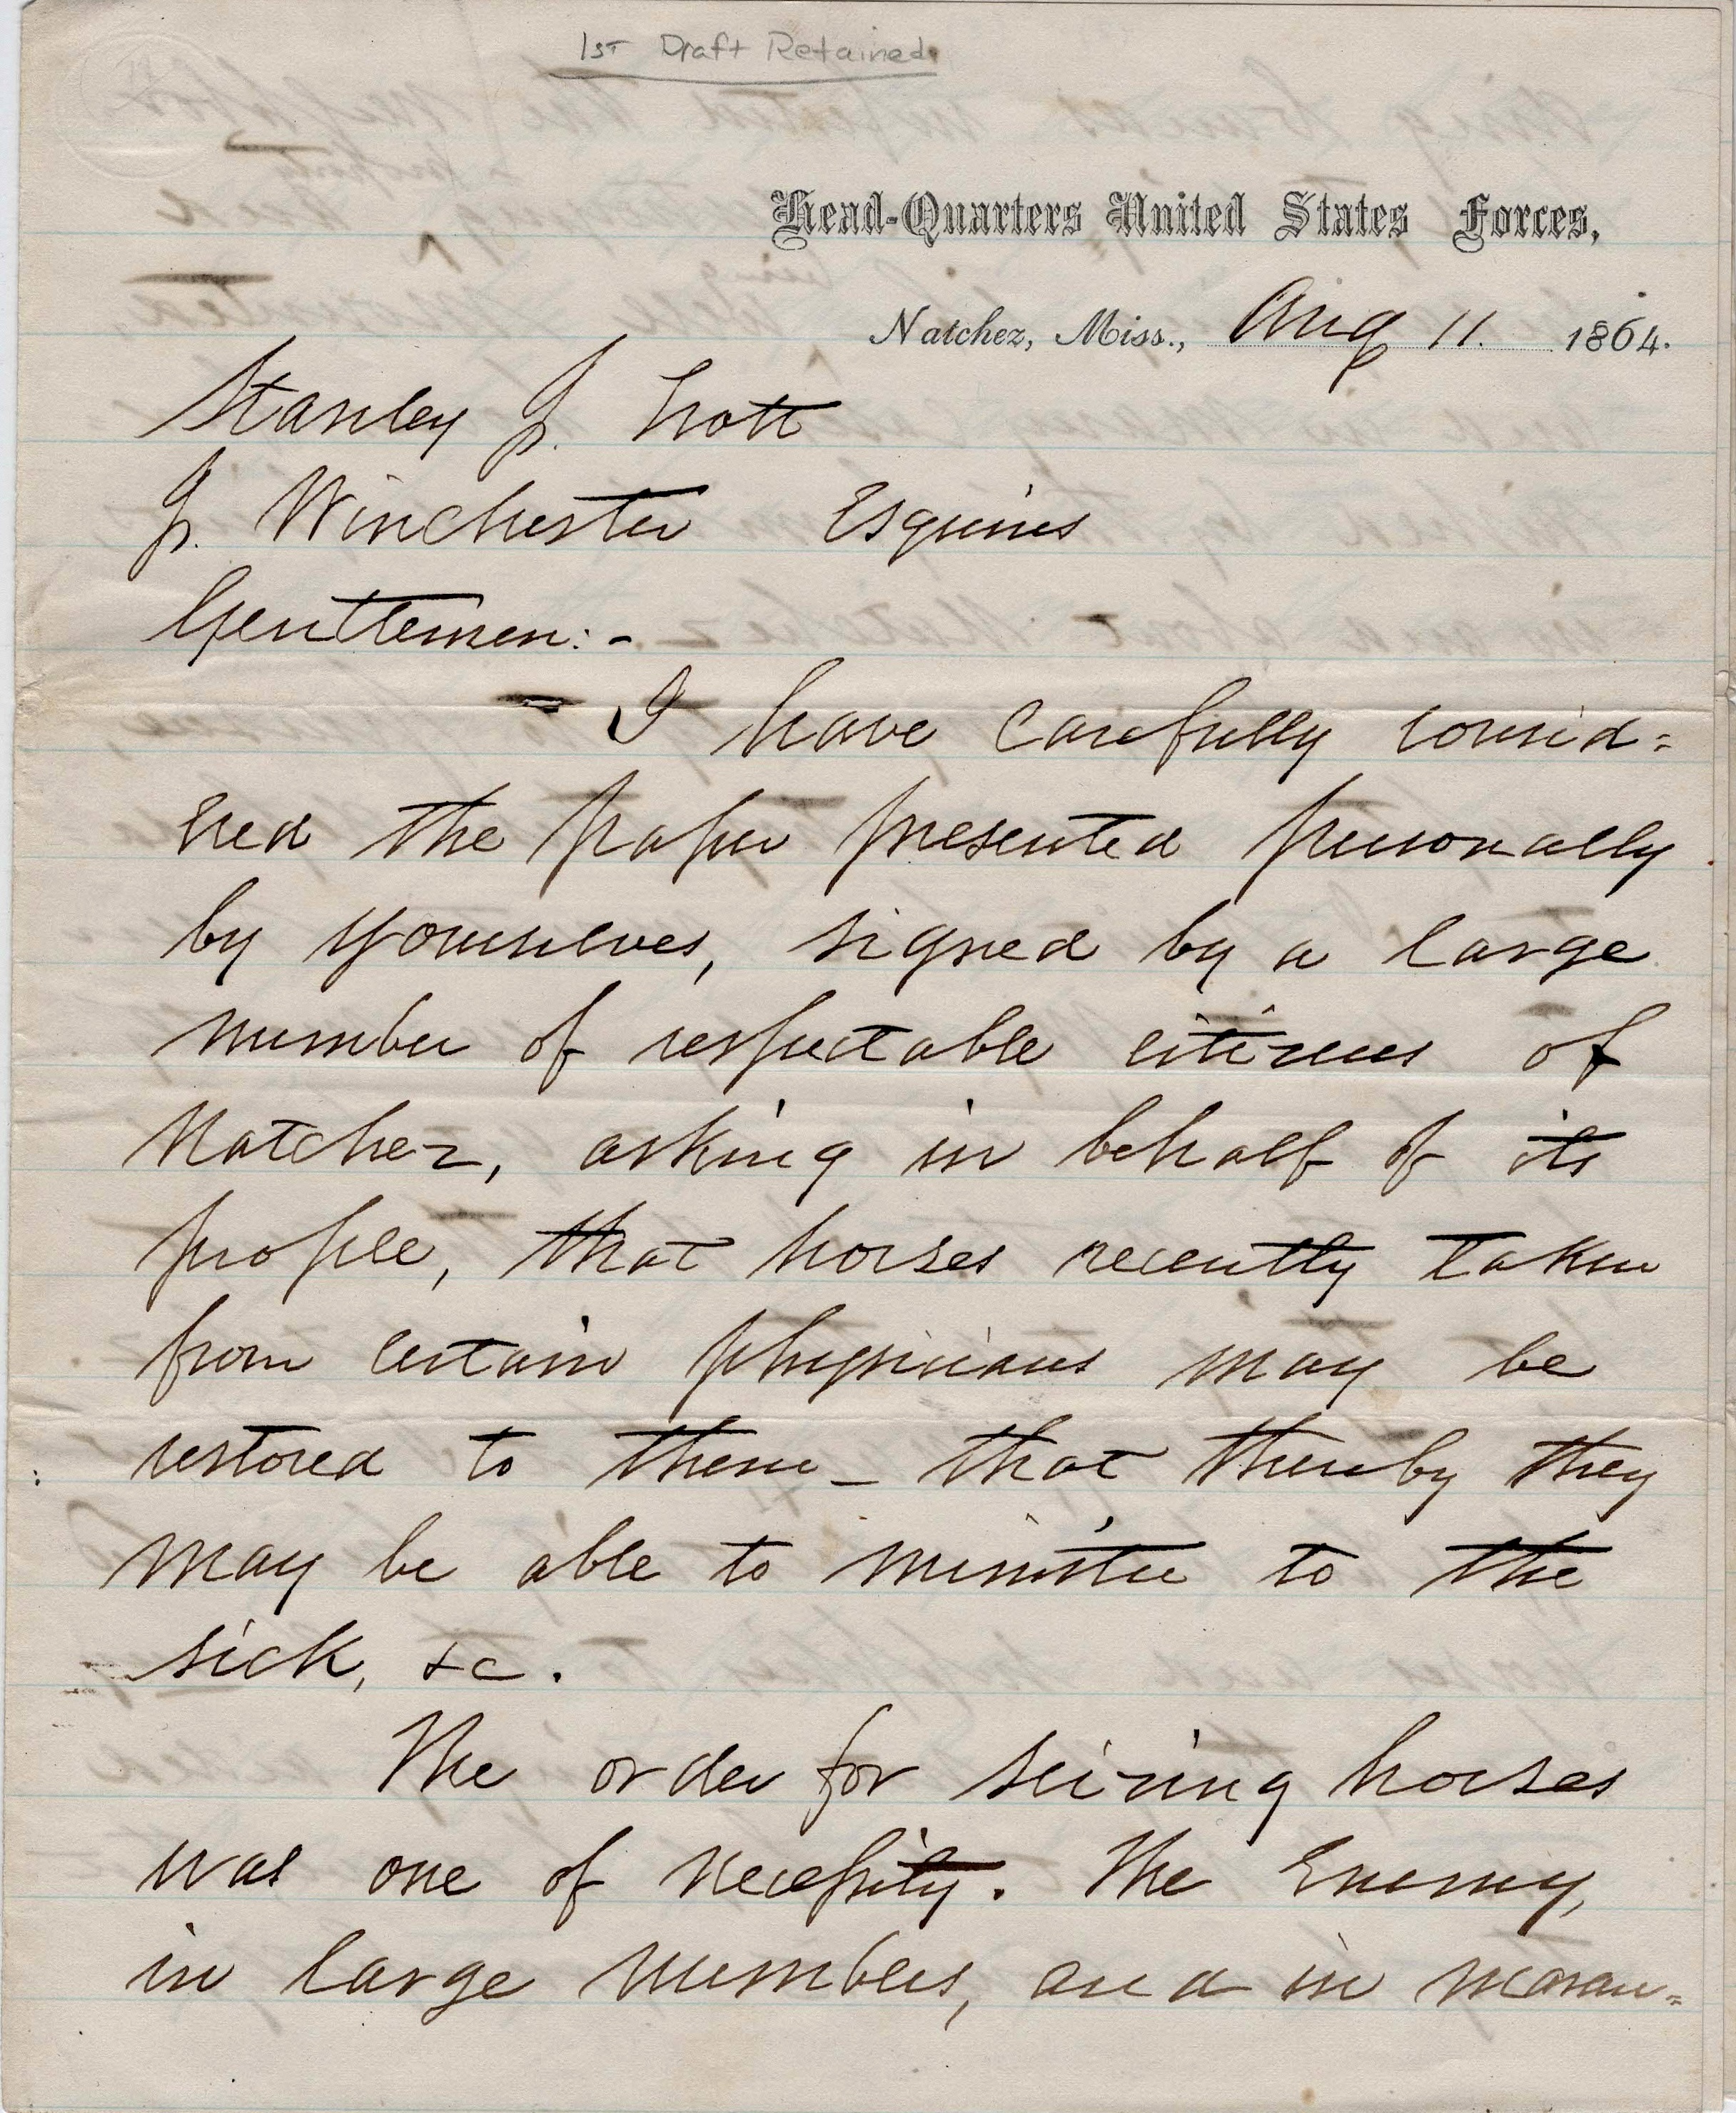 1st Draft Retained.
Head-Quarters United States Forces,
Natchez, Miss., Aug 11. 1864.
Stanley J. Trott
J. Winchester Esquires
Gentlemen:-
I have carefully consid=
ered the paper presented personally
by yourselves, signed by a large
number of respectable citizens of
Natchez, asking in behalf of its
people, that horses recently taken
from certain physicians may be
restored to them - that thereby they
may be able to minister to the
sick, &c.
The order for seizing horses
was one of necessity. The Enemy,
in large numbers, and in marau=